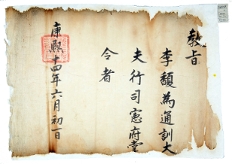 敎旨
李馥為通訓大
夫行司憲府掌
令者
康熙十四年六月初一日